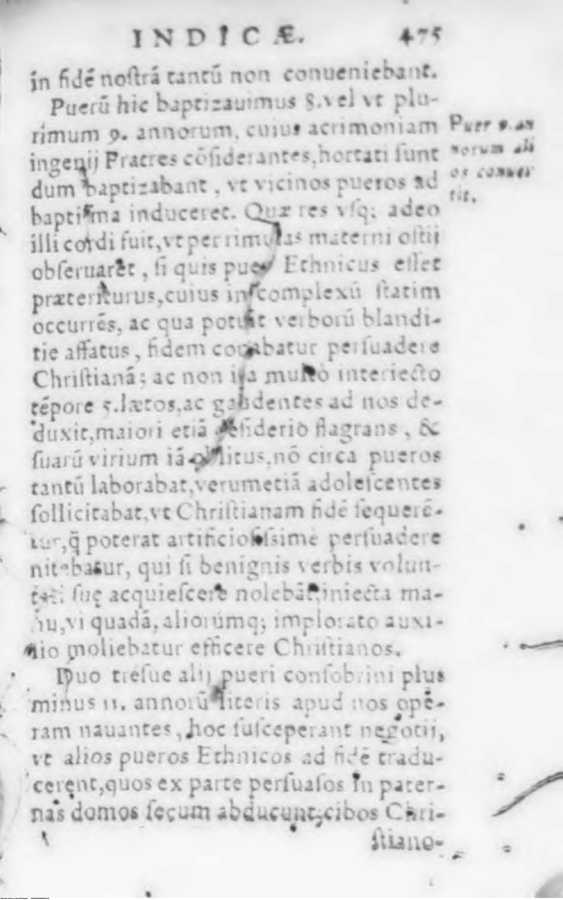 INDICÆ. 475
in fidẽ noſtrã tantũ non conueniebant.
Puerũ hic baptizauimus 8. vel vt plu-
rimum 9. annorum, cuius acrimoniam
ingenij Fratres cõſiderantes, hortati ſunt
dum baptizabant, vt vicinos pueros ad
baptiſma induceret. Quæ res vſq; adeo
illi cordi fuit, vt per rimulas materni oſtij
obſeruaret, ſi quis puer Ethnicus eſſet
præteriturus, cuius in complexũ ſtatim
occurrẽs, ac qua potuit verborũ blandi-
tie affatus, fidem conabatur perſuadere
Chriſtianã; ac non ita multo interiecto
tẽpore 5. lætos, ac gaudentes ad nos de-
duxit, maiori etiã deſiderio flagrans, &
ſuarũ virium iã oblitus, nõ circa pueros
tantũ laborabat, verumetiã adoleſcentes
ſollicitabat, vt Chriſtianam fidẽ ſequerẽ-
tur, q̃ poterat artificioſiſſime perſuadere
nitebatur, qui ſi benignis verbis volun-
tati ſuę acquieſcere nolebãt, iniecta ma-
nu, vi quadã, aliorumq; implorato auxi-
lio moliebatur efficere Chriſtianos.
Duo treſue alij pueri conſobrini plus
minus 11. annorũ literis apud nos ope-
ram nauantes, hoc ſuſceperant negotij,
vt alios pueros Ethnicos ad fidẽ tradu-
cerent, quos ex parte perſuaſos in pater-
nas domos ſecum abducunt, cibos Chri-
ſtiano-
Puer 9. an
norum ali
os conuer
tit.